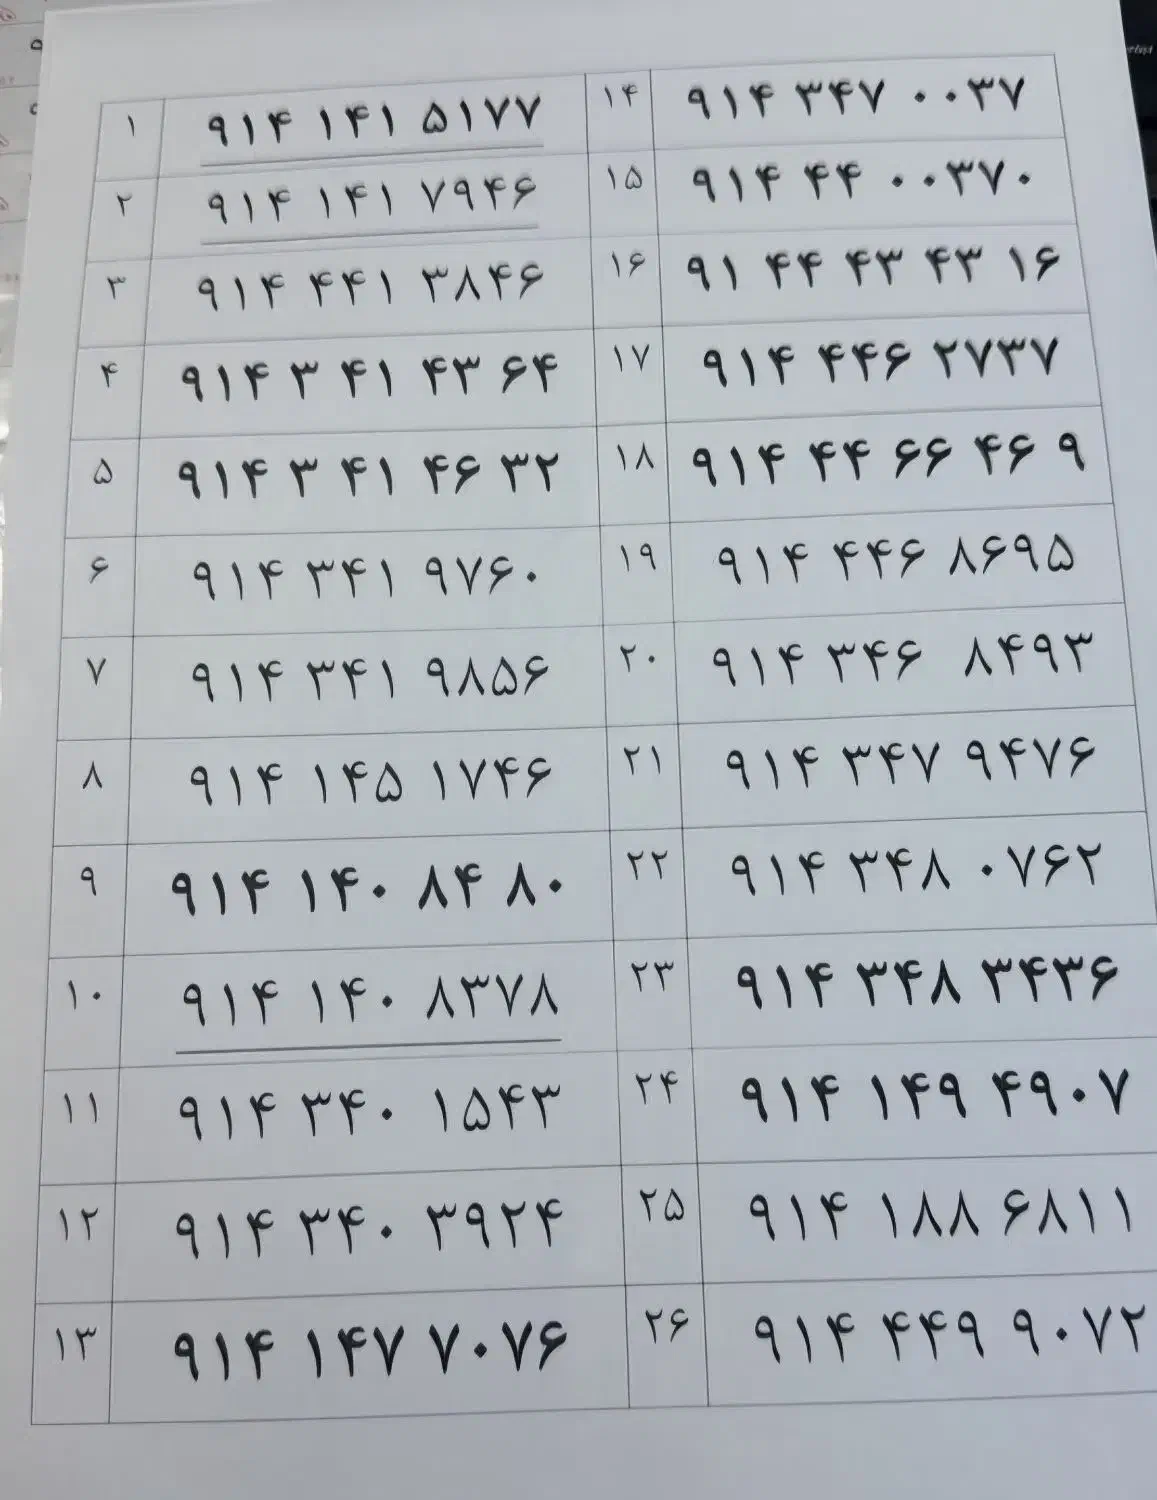 ۱ ۹۱۴ ۱۴۱ ۵۱۷۷
۲ ۹۱۴ ۱۴۱ ۷۹۴۶
۳ ۹۱۴ ۴۴۱ ۳۸۴۶
۴ ۹۱۴ ۳ ۴۱ ۴۳ ۶۴
۵ ۹۱۴ ۳ ۴۱ ۴۶ ۳۲
۶ ۹۱۴ ۳۴۱ ۹۷۶۰
۷ ۹۱۴ ۳۴۱ ۹۸۵۶
۸ ۹۱۴ ۱۴۵ ۱۷۴۶
۹ ۹۱۴ ۱۴۰ ۸۴ ۸۰
۱۰ ۹۱۴ ۱۴۰ ۸۳۷۸
۱۱ ۹۱۴ ۳۴۰ ۱۵۴۳
۱۲ ۹۱۴ ۳۴۰ ۳۹۲۴
۱۳ ۹۱۴ ۱۴۷ ۷۰۷۶
۱۴ ۹۱۴ ۳۴۷ ۰۰۳۷
۱۵ ۹۱۴ ۴۴ ۰۰۳۷۰
۱۶ ۹۱ ۴۴ ۴۳ ۴۳ ۱۶
۱۷ ۹۱۴ ۴۴۶ ۲۷۳۷
۱۸ ۹۱۴ ۴۴ ۶۶ ۴۶ ۹
۱۹ ۹۱۴ ۴۴۶ ۸۶۹۵
۲۰ ۹۱۴ ۳۴۶ ۸۴۹۳
۲۱ ۹۱۴ ۳۴۷ ۹۴۷۶
۲۲ ۹۱۴ ۳۴۸ ۰۷۶۲
۲۳ ۹۱۴ ۳۴۸ ۳۴۳۶
۲۴ ۹۱۴ ۱۴۹ ۴۹۰۷
۲۵ ۹۱۴ ۱۸۸ ۶۸۱۱
۲۶ ۹۱۴ ۴۴۹ ۹۰۷۲